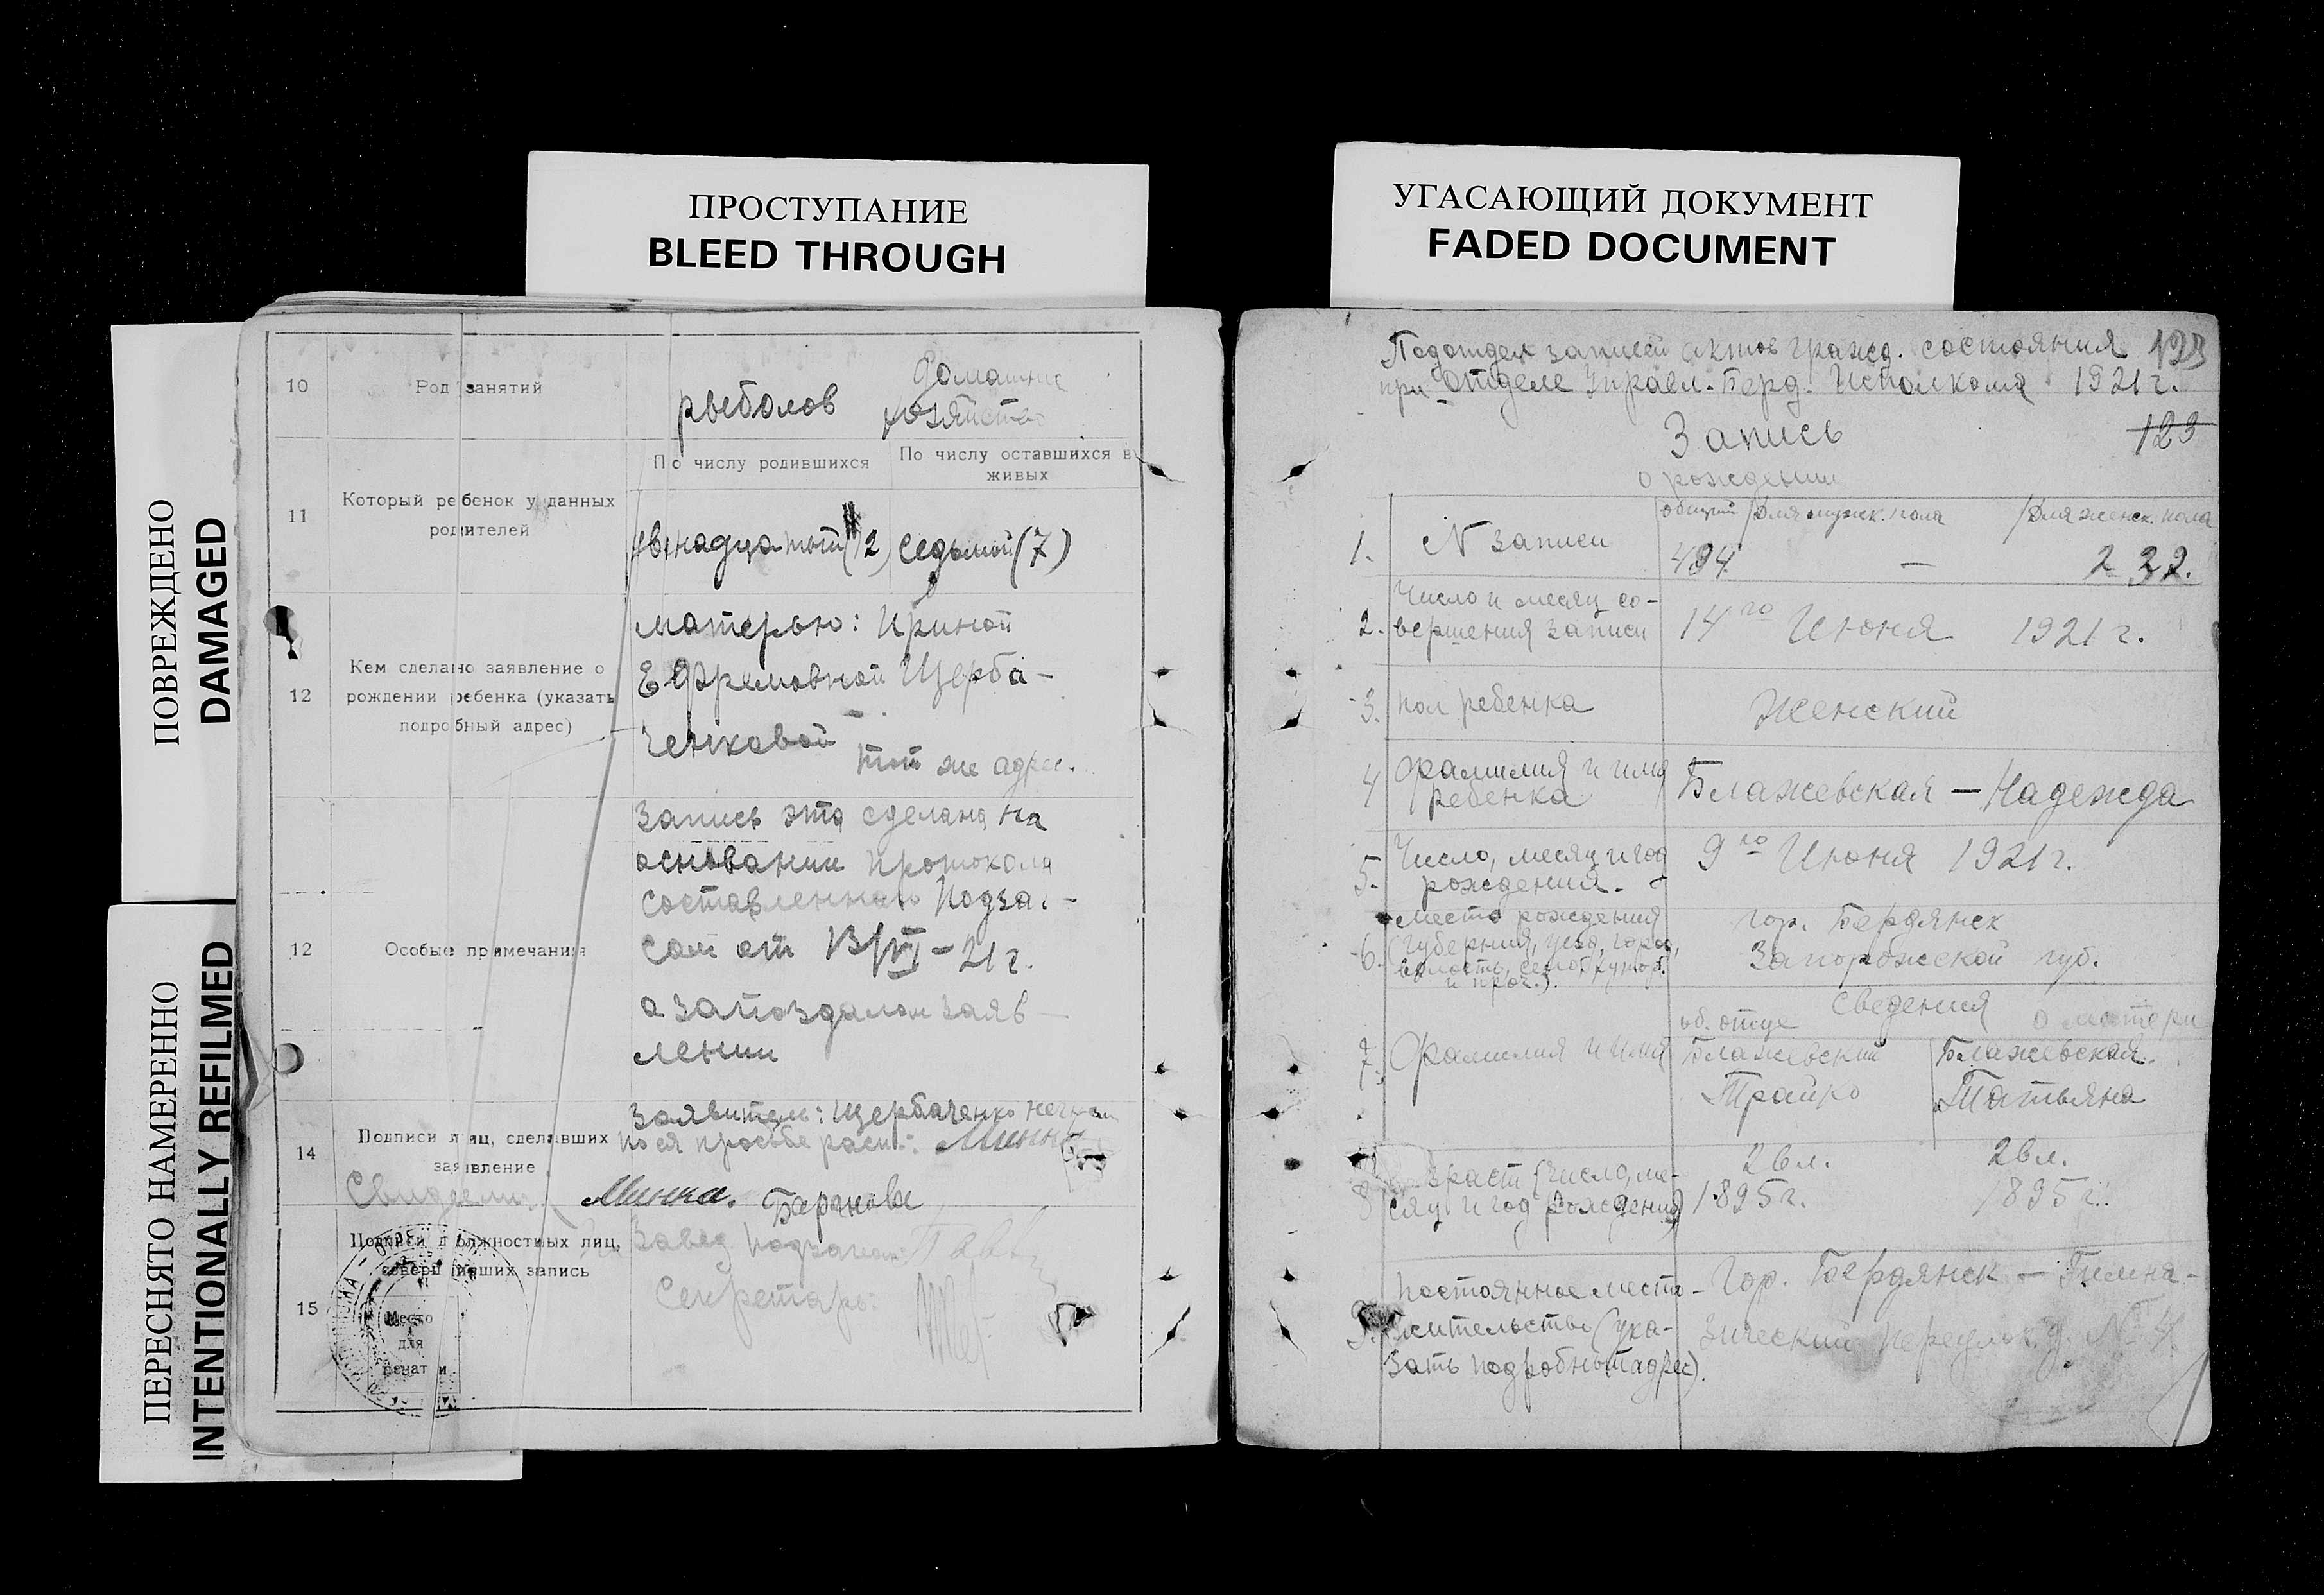 ПРОСТУПАНИЕ
BLEED THROUGH
УГАСАЮЩИЙ ДОКУМЕНТ
FADED DOCUMENT
ПОВРЕЖДЕНО
DAMAGED
ПЕРЕСНЯТО НАМЕРЕННО
INTENTIONALLY REFILMED
10 Род занятий рыболов домашнее
хозяйство
По числу родившихся По числу оставшихся в
живых
11 Который ребенок у данных
родителей
двенадцатый (12) седьмой (7)
12 Кем сделано заявление о
рождении ребенка (указать
подробный адрес)
матерью: Ириной
Ефремовной Щерба-
ченковой
тот же адрес.
12 Особые примечания
Запись эта сделана на
основании протокола
составленного Подза.-
сом от 13/VI - 21 г.
о запоздалом заяв-
лении
14 Подписи лиц, сделавших
заявление
Заявитель: Щербаченко негр
по ея просьбе расп.:
15 Подписи должностных лиц,
совершивших запись
Завед.
Секретарь:
Место
для
печати
Подотдел записей актов гражд. состояния 123
при Отделе Управл. Берд. Исполкома 1921 г.
Запись 123
о рождении
общий Для мужск. пола Для женск. пола
1. N записи 494 — 232.
2. Число и месяц со-
вершения записи 14го Июня 1921 г.
3. Пол ребенка Женский
4 Фамилия и имя
ребенка Блажевская — Надежда
5. Число, месяц и год
рождения. 9го Июня 1921 г.
6. Место рождения
(губерния, уезд, город,
волость, село, хутор
и проч.).
гор. Бердянск
Запорожской губ.
Сведения
об отце о матери
7. Фамилия и имя Блажевский Блажевская
Трайко Татьяна
8 Возраст (число, ме-
сяц и год рождения) 26 л. 26 л.
1895 г. 1895 г.
9. Постоянное место-
жительство (ука-
зать подробный адрес).
Гор. Бердянск — Гимна-
зический переулок д. № 4